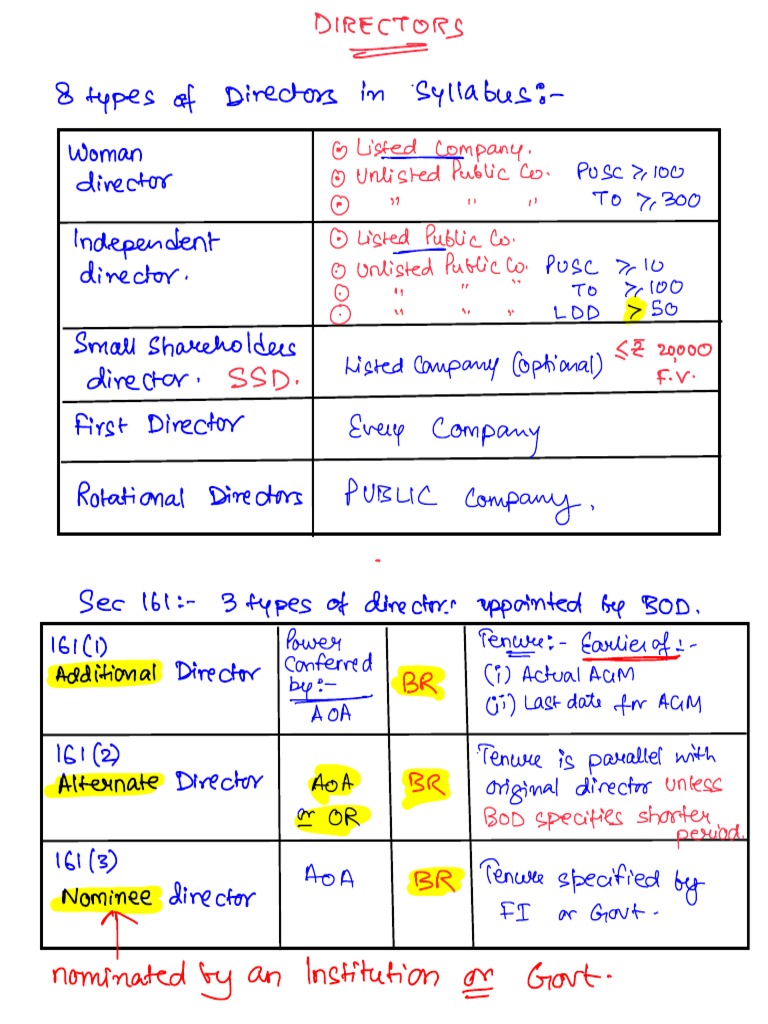 DIRECTORS
8 types of Directors in Syllabus:-
Woman director
⊙ Listed Company.
⊙ Unlisted Public Co. PUSC ≥ 100
⊙ " " " TO ≥ 300
Independent director.
⊙ Listed Public Co.
⊙ Unlisted Public Co. PUSC ≥ 10
⊙ " " " TO ≥ 100
⊙ " " " LDD > 50
Small Shareholders
director. SSD.
Listed Company (optional) ≤ ₹ 20,000
F.V.
First Director
Every Company
Rotational Directors
PUBLIC Company.
Sec 161:- 3 types of director appointed by BOD.
161(1)
Additional Director
Power
Conferred
by:-
AOA
BR
Tenure:- Earlier of:-
(i) Actual AGM
(ii) Last date for AGM
161(2)
Alternate Director
AOA
or OR
BR
Tenure is parallel with
original director unless
BOD specifies shorter
period.
161(3)
Nominee director
AOA
BR
Tenure specified by
FI or Govt.
nominated by an Institution or Govt.